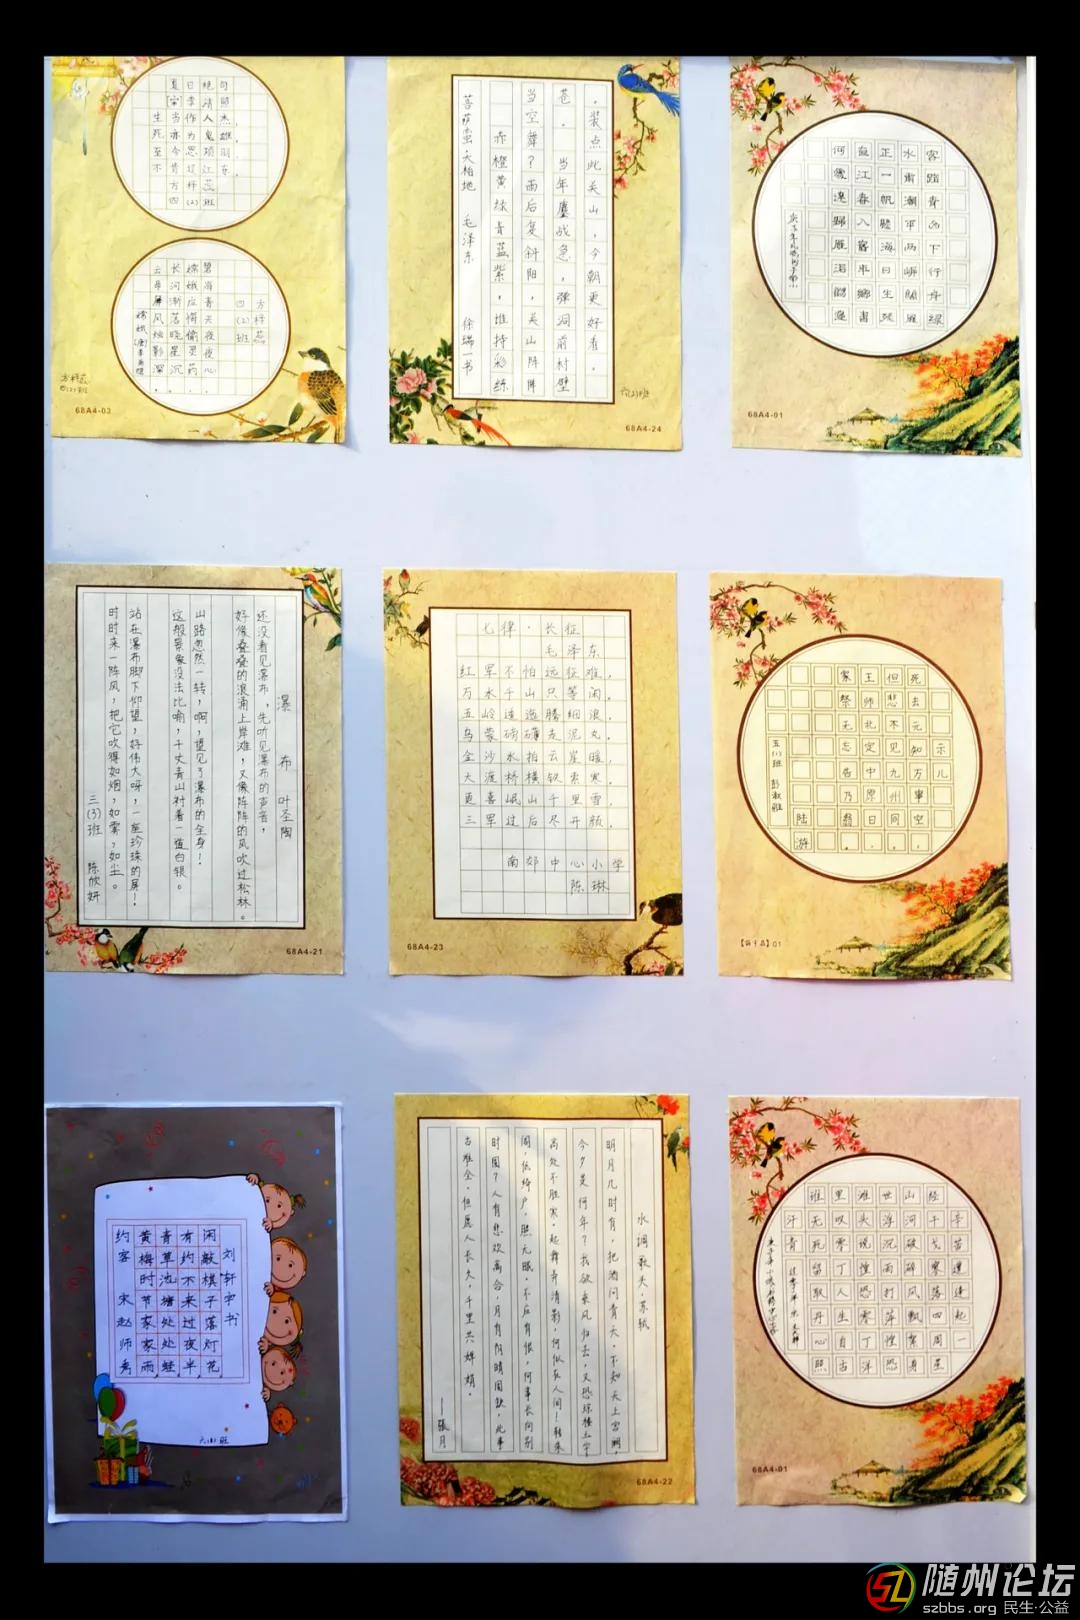 夏日绝句
[宋]李清照
生当作人杰,
死亦为鬼雄.
至今思项羽,
不肯过江东
方梓蕊
四(2)班
嫦娥(唐)李商隐
云母屏风烛影深,
长河渐落晓星沉.
嫦娥应悔偷灵药,
碧海青天夜夜心.
四(2)班
方梓蕊
方梓蕊
四(2)班
68A4-03
菩萨蛮·大柏地 毛泽东 徐瑞一书
赤橙黄绿青蓝紫，谁持彩练
当空舞？雨后复斜阳，关山阵阵
苍。当年鏖战急，弹洞前村壁
。装点此关山，今朝更好看。
六(2)班
68A4-24
客路青山下行舟綠
水前潮平两岸闊風
正一帆懸海日生殘
夜江春入舊年鄉書
何處達歸雁洛陽邊
68A4-01
瀑布 叶圣陶
还没看见瀑布，先听见瀑布的声音，
好像叠叠的浪涌上岸滩，又像阵阵的风吹过松林。
山路忽然一转，啊，望见了瀑布的全身！
这般景象没法比喻，千丈青山衬着一道白银。
站在瀑布脚下仰望，好伟大呀，一座珍珠的屏！
时时来一阵风，把它吹得如烟，如雾，如尘。
三(3)班 陈欣妍
68A4-21
七律·长征
毛泽东
红军不怕远征难，
万水千山只等闲。
五岭逶迤腾细浪，
乌蒙磅礴走泥丸。
金沙水拍云崖暖，
大渡桥横铁索寒。
更喜岷山千里雪，
三军过后尽开颜。
南郊中心小学
陈琳
68A4-23
死去元知万事空，
但悲不见九州同。
王师北定中原日，
家祭无忘告乃翁。
示儿
陆游
五(1)班
01
约客 宋 赵师秀
黄梅时节家家雨
青草池塘处处蛙
有约不来过夜半
闲敲棋子落灯花
刘轩宇书
六(1)班
水调歌头·苏轼
明月几时有，把酒问青天，不知天上宫阙，
今夕是何年？我欲乘风归去，又恐琼楼玉宇，
高处不胜寒，起舞弄清影，何似在人间！转朱
阁，低绮户，照无眠，不应有恨，何事长向别
时圆？人有悲欢离合，月有阴晴圆缺，此事
古难全，但愿人长久，千里共婵娟。
——張月
68A4-22
辛苦遭逢起一
经干戈寥落四周星
山河破碎风飘絮身
世浮沉雨打萍惶恐
滩头说惶恐零丁洋
里叹零丁人生自古
谁无死留取丹心照
汗青
68A4-01
随州论坛
szbbs.org 民生·公益